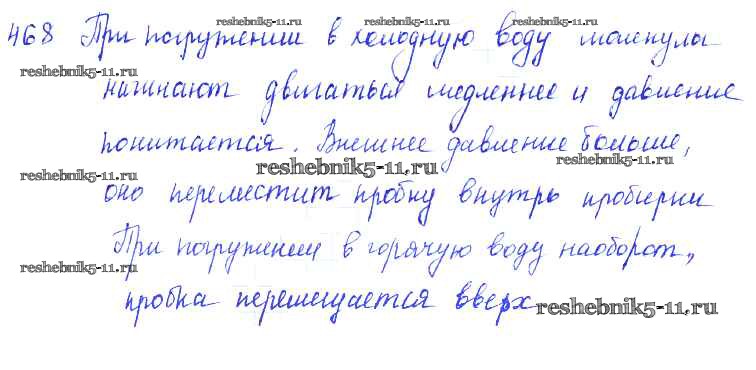 468 При погружении в холодную воду молекулы
начинают двигаться медленнее и давление
понижается. Внешнее давление больше,
оно переместит пробку внутрь пробирки
При погружении в горячую воду наоборот,
пробка перемещается вверх
reshebnik5-11.ru
reshebnik5-11.ru
reshebnik5-11.ru
reshebnik5-11.ru
reshebnik5-11.ru
reshebnik5-11.ru
reshebnik5-11.ru
reshebnik5-11.ru
reshebnik5-11.ru